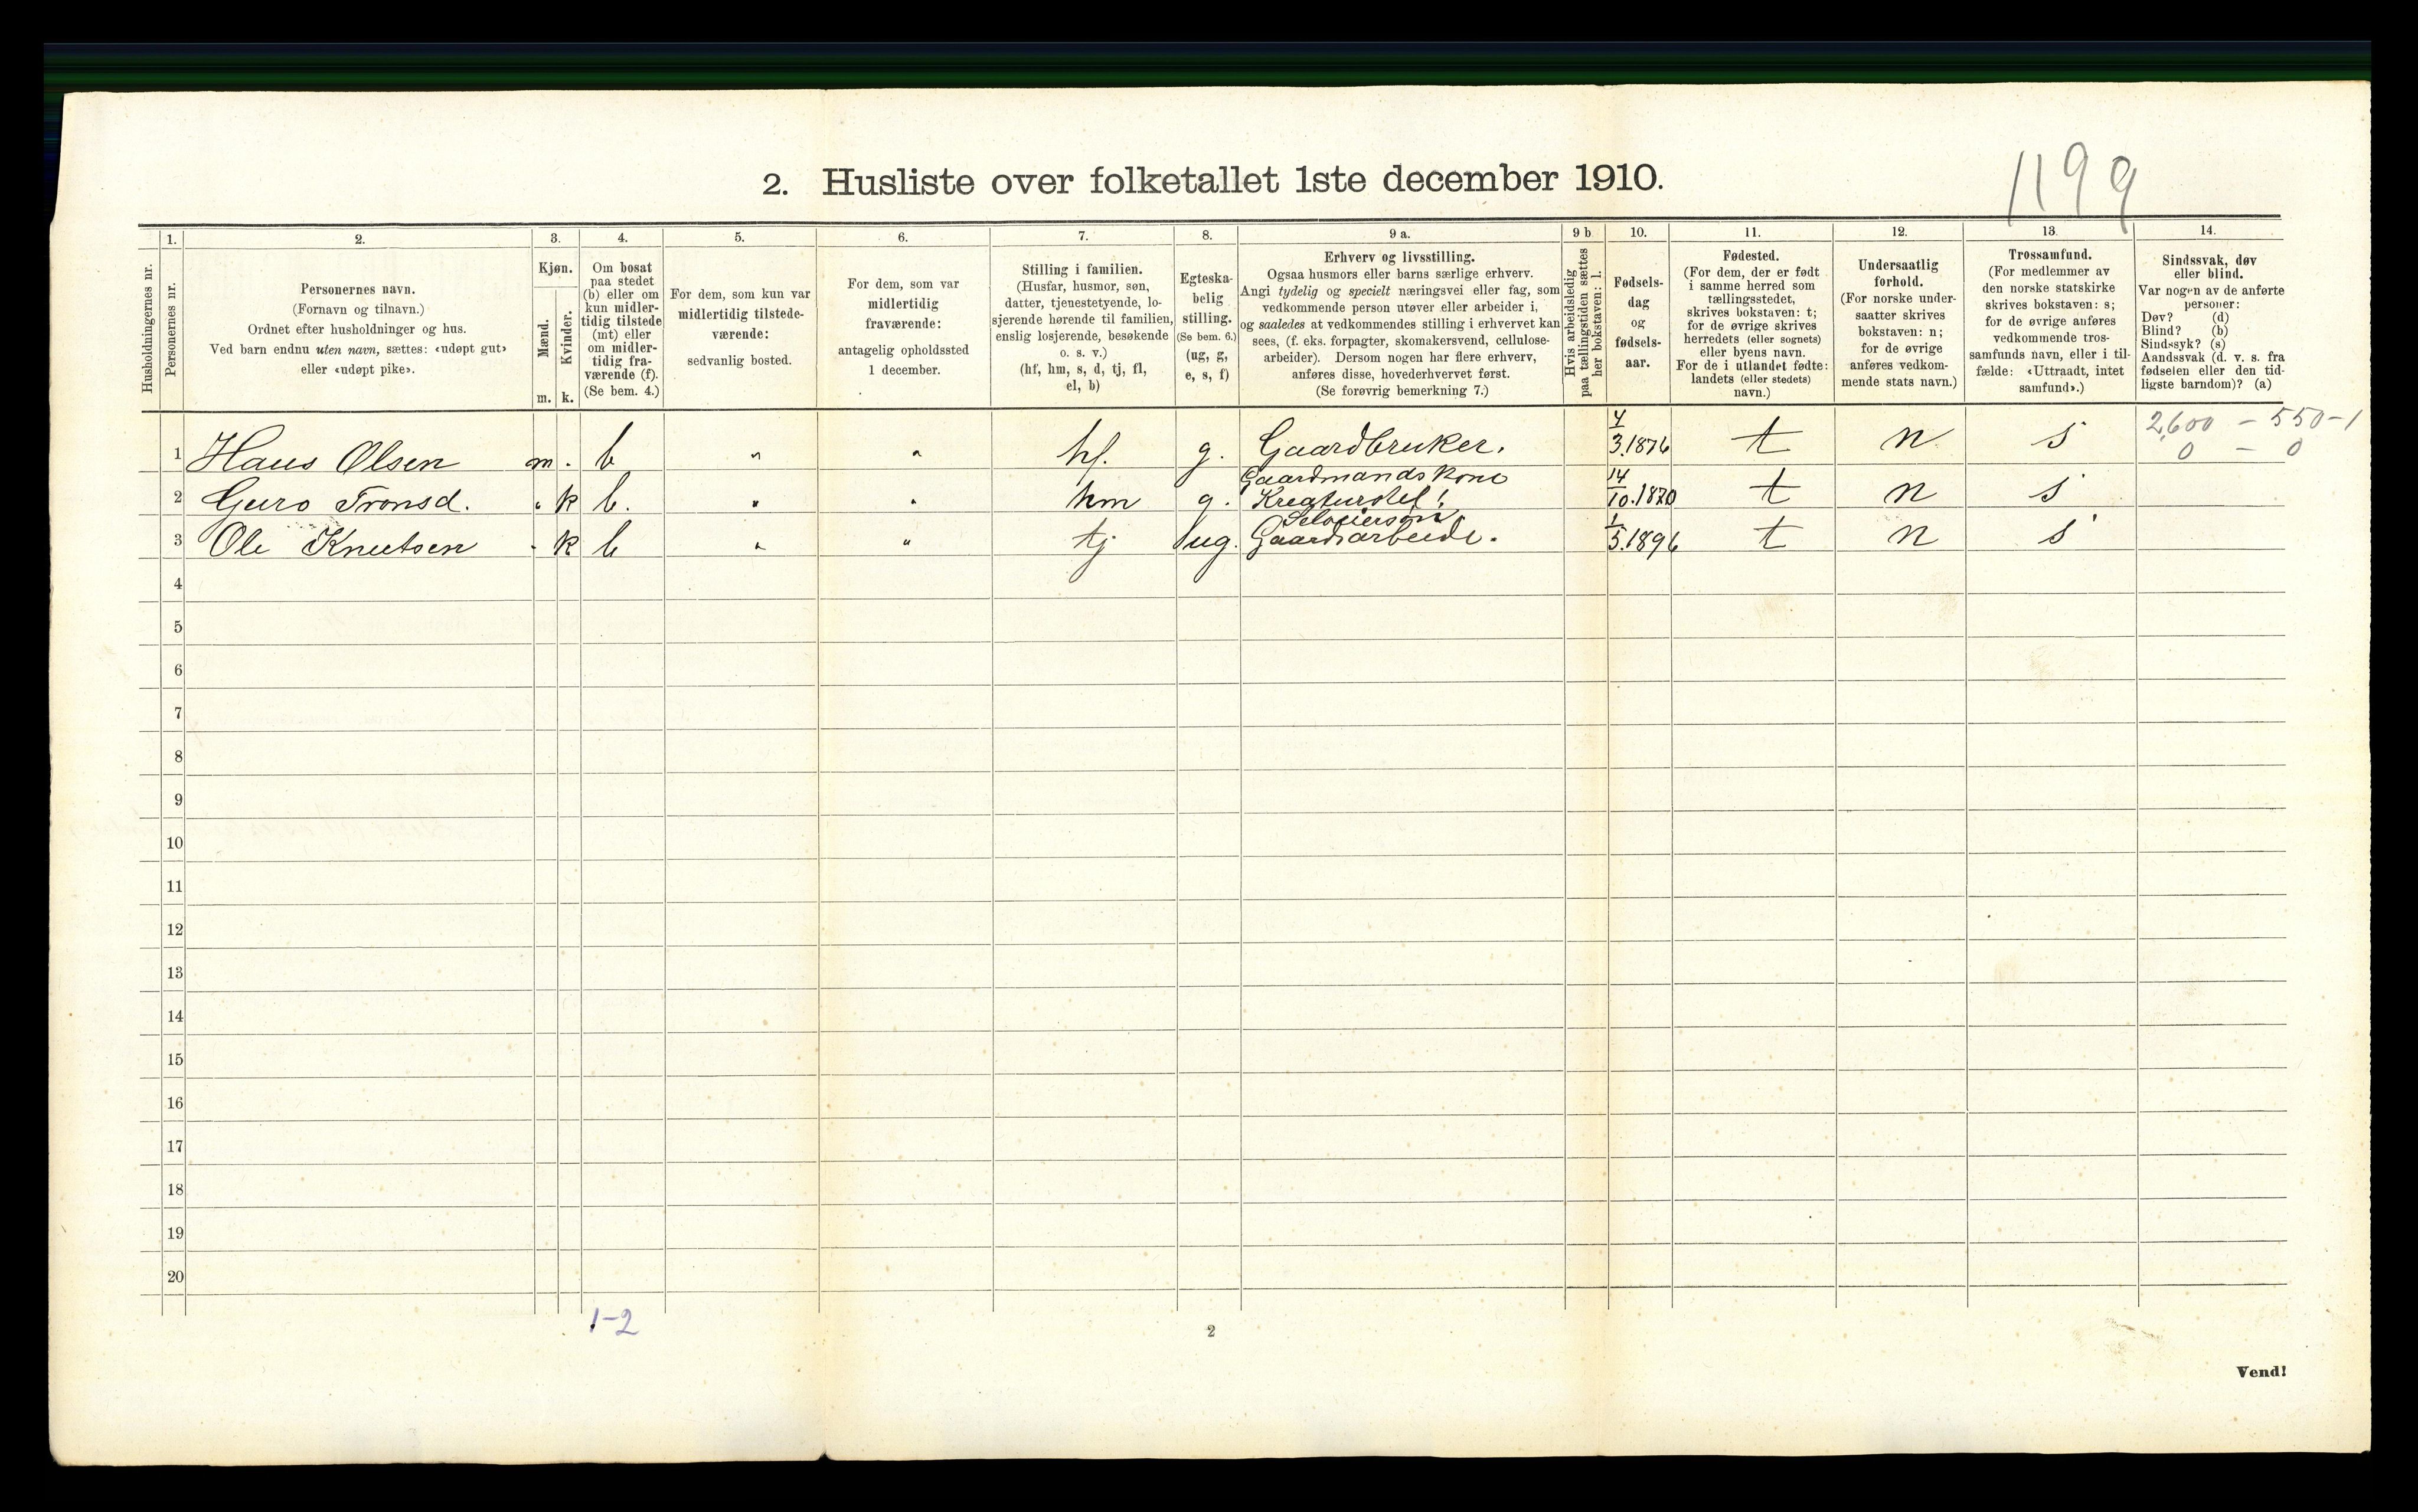 1199
2. Husliste over folketallet 1ste december 1910.
Husholdningernes nr.
1. Personernes nr.
2. Personernes navn.
(Fornavn og tilnavn.)
Ordnet efter husholdninger og hus.
Ved barn endnu uten navn, sættes: «udøpt gut»
eller «udøpt pike».
3. Kjøn.
Mænd. m.
Kvinder. k.
4. Om bosat
paa stedet
(b) eller om
kun midler-
tidig tilstede
(mt) eller
om midler-
tidig fra-
værende (f).
(Se bem. 4.)
5. For dem, som kun var
midlertidig tilstede-
værende:
sedvanlig bosted.
6. For dem, som var
midlertidig
fraværende:
antagelig opholdssted
1 december.
7. Stilling i familien.
(Husfar, husmor, søn,
datter, tjenestetyende, lo-
sjerende hørende til familien,
enslig losjerende, besøkende
o. s. v.)
(hf, hm, s, d, tj, fl,
el, b)
8. Egteska-
belig
stilling.
(Se bem. 6.)
(ug, g,
e, s, f)
9 a. Erhverv og livsstilling.
Ogsaa husmors eller barns særlige erhverv.
Angi tydelig og specielt næringsvei eller fag, som
vedkommende person utøver eller arbeider i,
og saaledes at vedkommendes stilling i erhvervet kan
sees, (f. eks. forpagter, skomakersvend, cellulose-
arbeider). Dersom nogen har flere erhverv,
anføres disse, hovederhvervet først.
(Se forøvrig bemerkning 7.)
9 b Hvis arbeidsledig
paa tællingstiden sættes
her bokstaven: l.
10. Fødsels-
dag
og
fødsels-
aar.
11. Fødested.
(For dem, der er født
i samme herred som
tællingsstedet,
skrives bokstaven: t;
for de øvrige skrives
herredets (eller sognets)
eller byens navn.
For de i utlandet fødte:
landets (eller stedets)
navn.)
12. Undersaatlig
forhold.
(For norske under-
saatter skrives
bokstaven: n;
for de øvrige
anføres vedkom-
mende stats navn.)
13. Trossamfund.
(For medlemmer av
den norske statskirke
skrives bokstaven: s;
for de øvrige anføres
vedkommende tros-
samfunds navn, eller i til-
fælde: «Uttraadt, intet
samfund».)
14. Sindssvak, døv
eller blind.
Var nogen av de anførte
personer:
Døv? (d)
Blind? (b)
Sindssyk? (s)
Aandssvak (d. v. s. fra
fødselen eller den tid-
ligste barndom)? (a)
1 Hans Olsen m. b " " hf. g. Gaardbruker. 4/3.1876 t n s 2,600 - 550-1
0 - 0
Gaardmandskone
2 Guro Tronsd. " k b. " " hm g. Kreaturstel! 14/10.1870 t n s
3 Ole Knutsen - k b " " tj ug. Gaardsarbeide. 1/5.1896 t n s
4
5
6
7
8
9
10
11
12
13
14
15
16
17
18
19
20
1-2
2
Vend!